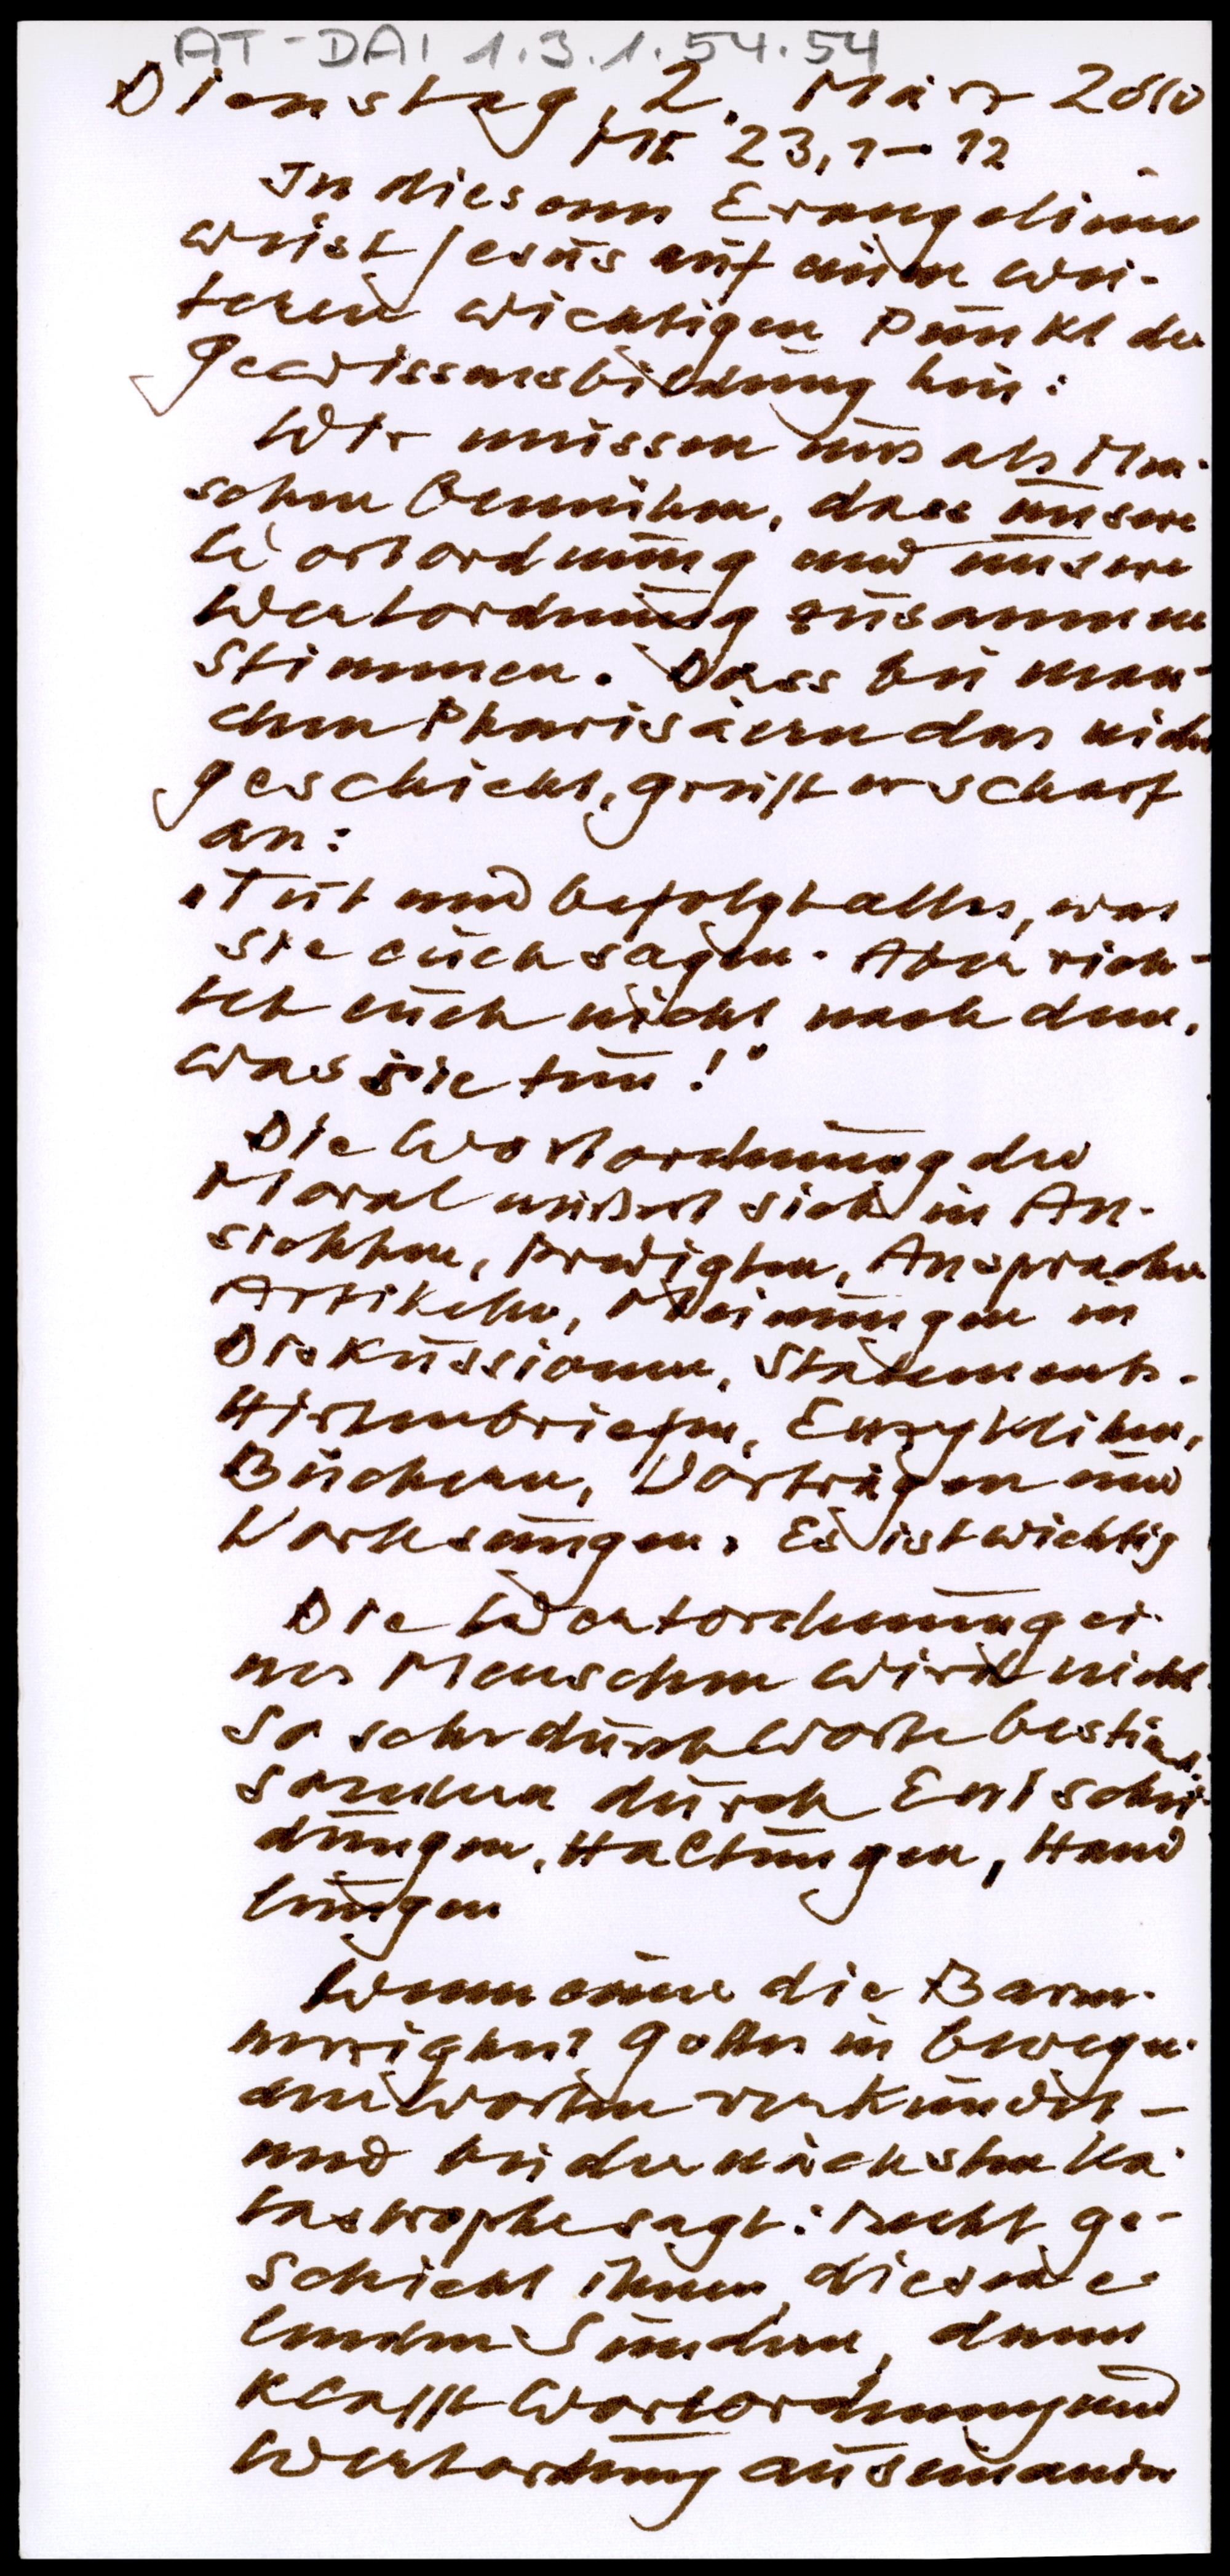 AT-DAI 1.3.1.54.54
Dienstag, 2. März 2010
Mt 23,1-12
In diesem Evangelium
weist Jesus auf einen wei-
teren wichtigen Punkt der
Gewissensbildung hin:
Wir müssen uns als Men-
schen bemühen, dass unsere
Wortordnung und unsere
Wertordnung zusammen
stimmen. Dass bei man-
chen Pharisäern das nicht
geschieht, greift er scharf
an:
"Tut und befolgt alles, was
sie euch sagen. Aber rich-
tet euch nicht nach dem,
was sie tun!"
Die Wortordnung der
Moral äußert sich in An-
sichten, Predigten, Ansprachen
Artikeln, Meinungen in
Diskussionen, Statements.
Hirtenbriefen, Enzykliken,
Büchern, Vorträgen und
Vorlesungen. Es ist wichtig
Die Wertordnung ei-
nes Menschen wird nicht
so sehr durch Worte bestimmt,
sondern durch Entschei-
dungen, Haltungen, Hand
lungen
Wenn einer die Barm-
herzigkeit Gottes in bewegen-
den Worten verkündet -
und bei der nächsten Ka-
tastrophe sagt: Recht ge-
schieht ihnen, diesen e-
lenden Sündern, dann
klafft Wortordnung und
Wertordnung auseinander